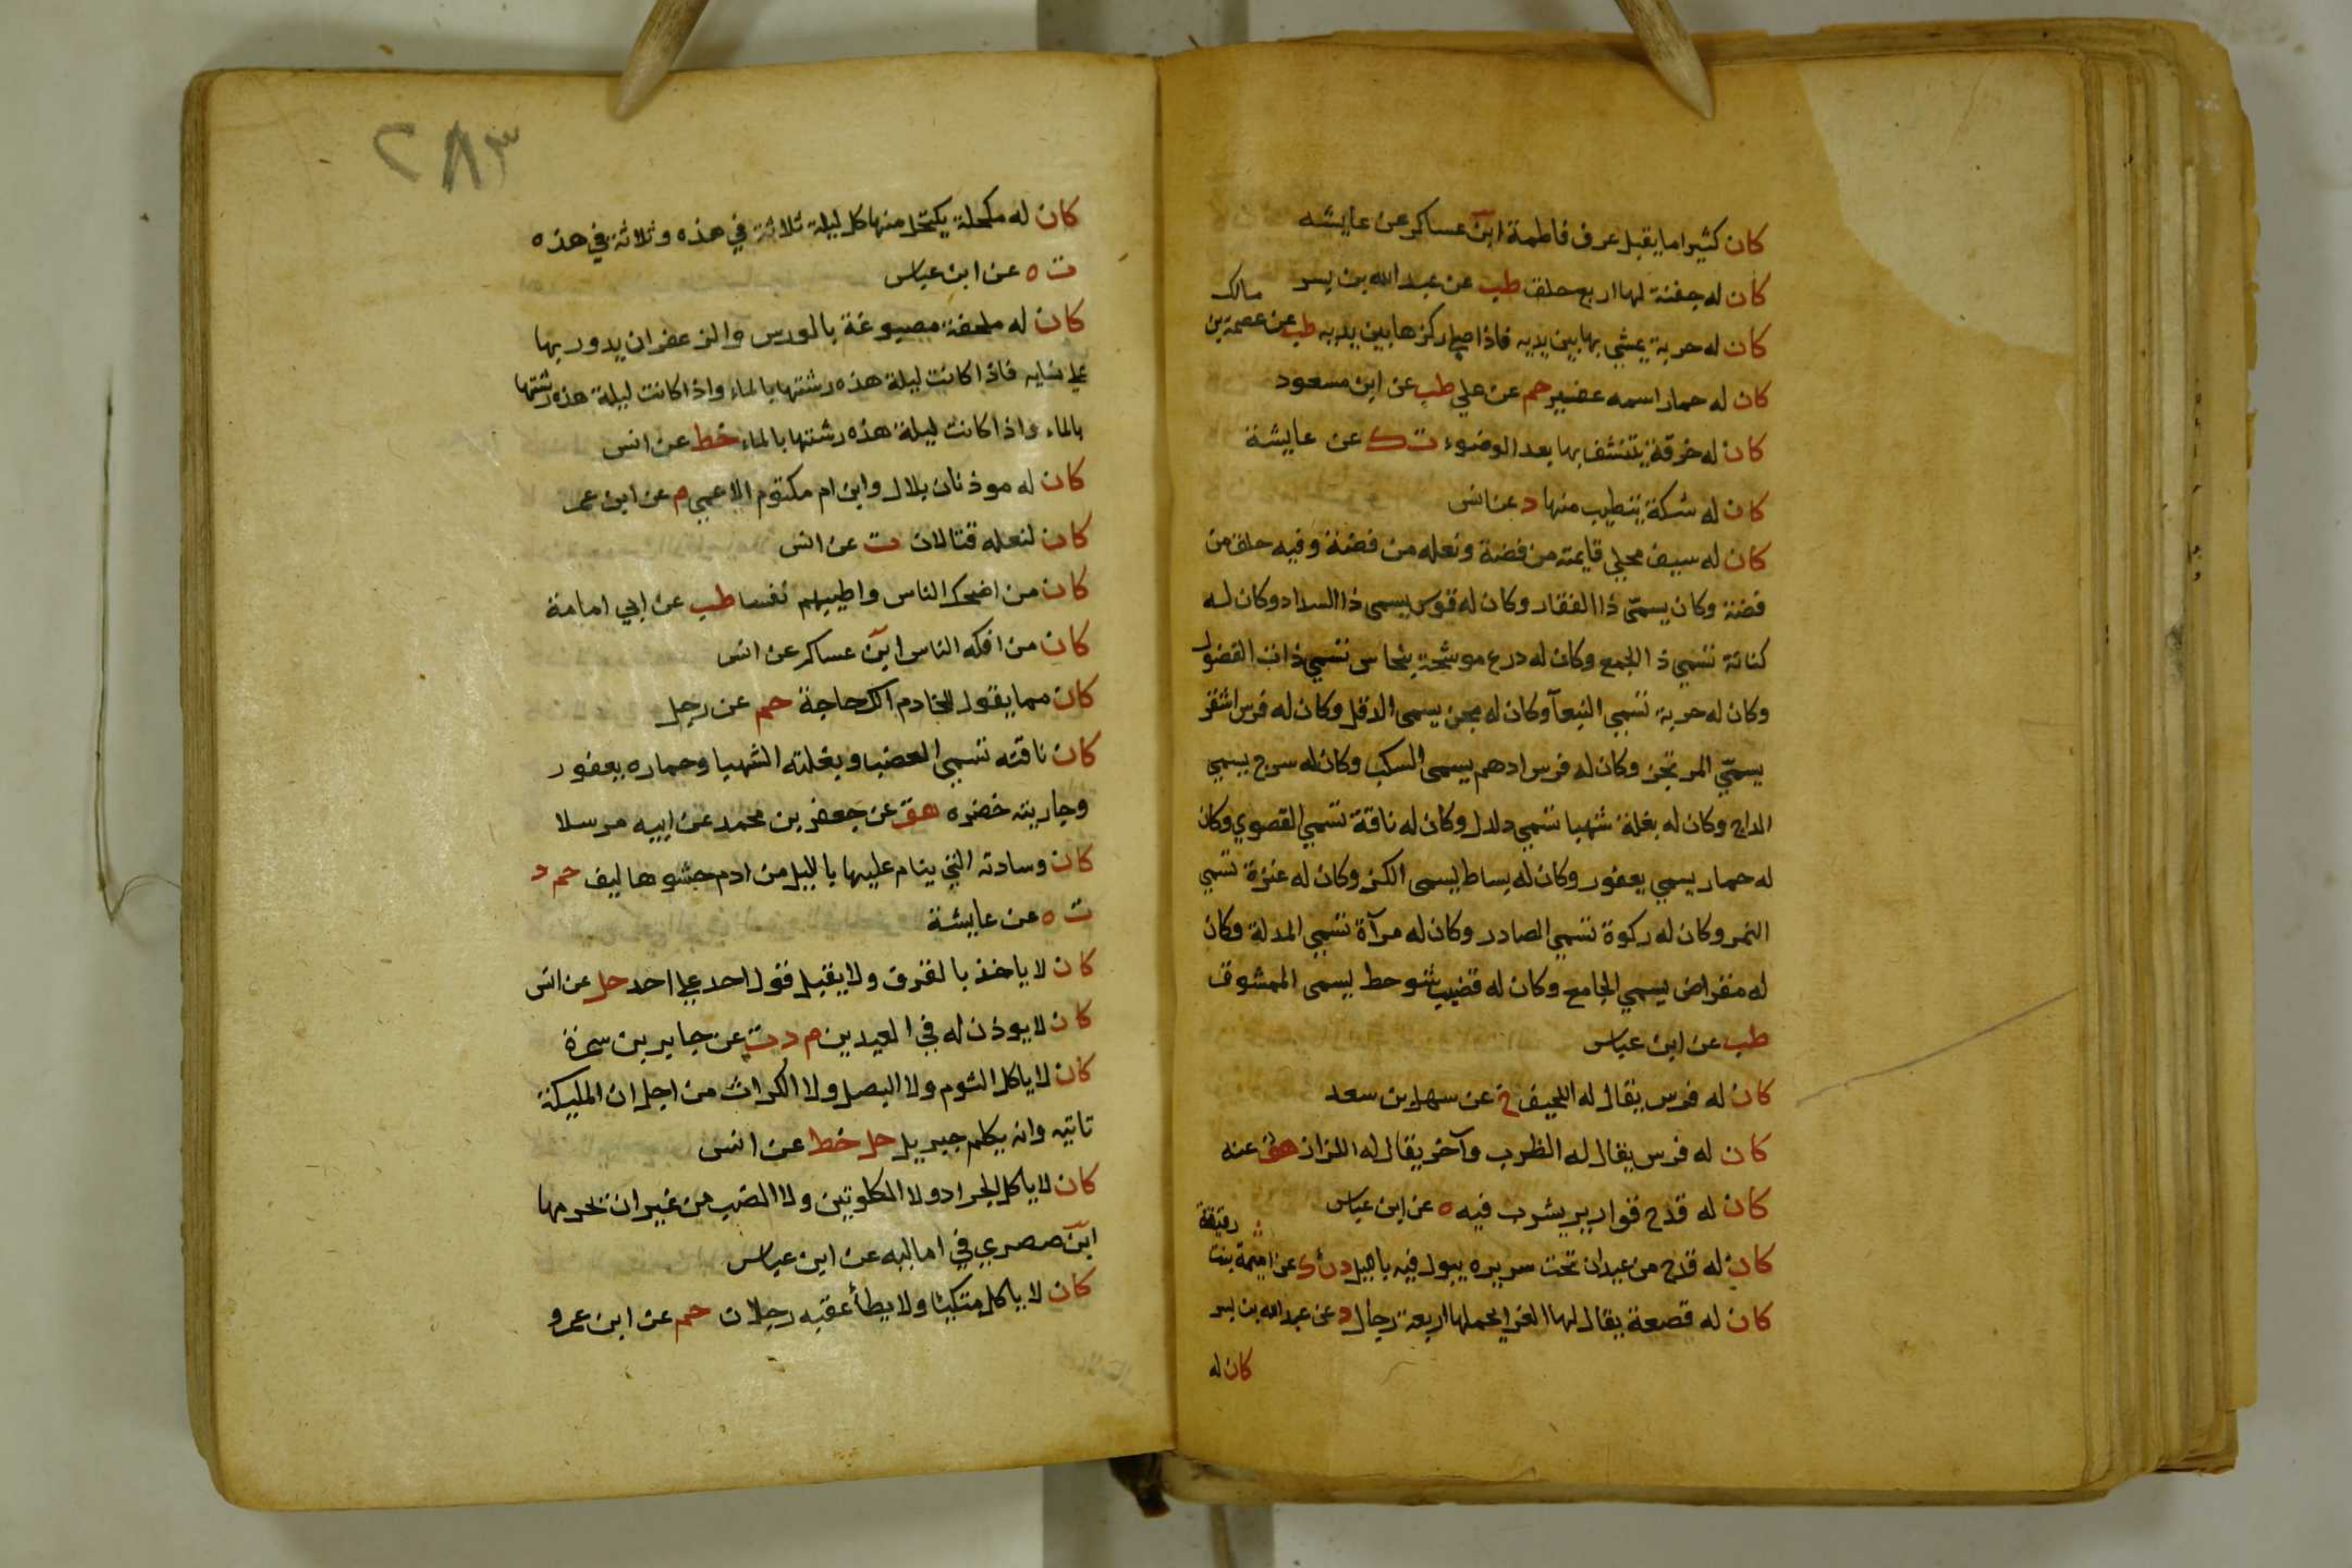 كان كثيرا ما يقبل عرف فاطمة ابن عساكر عن عايشه
كان له جفنة لها اربع حلق طب عن عبد الله بن يسر
كان له حربة يمشي بها بين يديه فاذا صلى ركزها بين يديه طب عن عصمة بن مالك
كان له حمار اسمه عفير حم عن علي طب عن ابن مسعود
كان له خرقة يتنشف بها بعد الوضوء ت ك عن عايشة
كان له سكة يتطيب منها د عن انس
كان له سيف محلي قايمته من فضة ونعله من فضة وفيه حلق من
فضة وكان يسمّى ذا الفقار وكان له قوس يسمى ذا السداد وكان له
كنانة تسمي ذا الجمع وكان له درع موشحة بنحاس تسمي ذات الفضول
وكان له حربة تسمي النبعآ وكان له مجن يسمى الذقل وكان له فرس اشقر
يسمّي المرتجز وكان له فرس ادهم يسمى السكب وكان له سرج يسمي
الداج وكان له بغلة شهبا تسمي دلدل وكان له ناقة تسمي القصوي وكان
له حمار يسمي يعفور وكان له بساط يسمى الكز وكان له عنزة تسمي
النمر وكان له ركوة تسمي الصادر وكان له مرآة تسمي المدلة وكان
له مقراض يسمي الجامع وكان له قضيب شوحط يسمى الممشوق
طب عن ابن عباس
كان له فرس يقال له اللحيف خ عن سهل بن سعد
كان له فرس يقال له الظرب وآخر يقال له اللزاز هق عنه
كان له قدح قوارير يشرب فيه ه عن ابن عباس
كان له قدح من عيدان تحت سريره يبول فيه باليل د ن ك عن اميمة بنت رقيقة
كان له قصعة يقال لها الغرا يحملها اربعة رجال د عن عبد الله بن يسر
كان له
٢٨٣
كان له مكحلة يكتحل منها كل ليلة ثلاثة في هذه وثلاثة في هذه
ت ه عن ابن عباس
كان له ملحفة مصبوغة بالورس والزعفران يدور بها
علي نسايه فاذا كانت ليلة هذه رشتها بالماء واذا كانت ليلة هذه رشتها
بالماء واذا كانت ليلة هذه رشتها بالماء خط عن انس
كان له موذنان بلال وابن ام مكتوم الاعمي م عن ابن عمر
كان لنعله قبالان ت عن انس
كان من اضحك الناس واطيبهم نفسا طب عن ابي امامة
كان من افكه الناس ابن عساكر عن انس
كان مما يقول للخادم الك حاجة حم عن رجل
كان ناقته تسمي العضبا وبغلته الشهبا وحماره يعفور
وجاريته خضره هق عن جعفر بن محمد عن ابيه مرسلا
كان وسادته التي ينام عليها بالليل من ادم حشوها ليف حم د
ت ه عن عايشة
كان لا ياخذ بالقرف ولا يقبل قول احد علي احد حل عن انس
كان لا يوذن له في العيدين م د ت عن جابر بن سمرة
كان لا ياكل الثوم ولا البصل ولا الكراث من اجل ان المليكة
تاتيه وانه يكلم جبريل حل خط عن انس
كان لا ياكل الجراد ولا الكلوتين ولا الضب من غير ان يحرمها
ابن صصري في اماليه عن ابن عباس
كان لا ياكل متكيئا ولا يطأ عقبه رجلان حم عن ابن عمرو